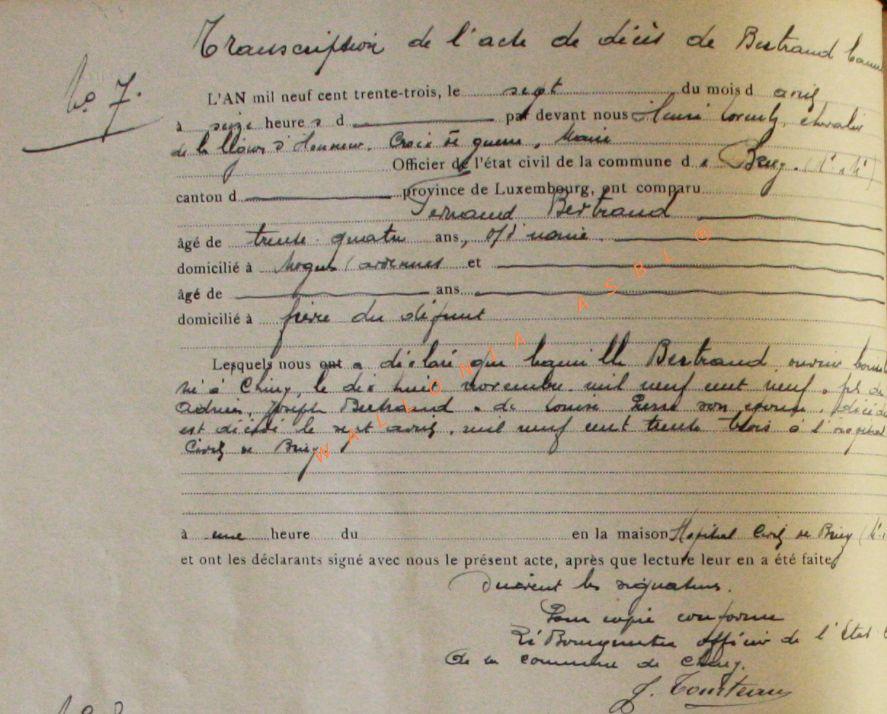 Transcription de l'acte de décès de Bertrand
No 7.
L'AN mil neuf cent trente-trois, le sept du mois d avril
à seize heures d par devant nous Henri chevalier
de la Légion d'Honneur, Croix de guerre, Maire
Officier de l'état civil de la commune de Briey
canton d province de Luxembourg, ont comparu
Fernand Bertrand
âgé de trente quatre ans,
domicilié à Mogues (Ardennes et
âgé de ans
domicilié à frère du défunt
Lesquels nous ont a déclaré que Camille Bertrand
né à Chiny, le dix huit novembre mil neuf cent neuf, fils de
Adrien, Joseph Bertrand & de Louise Pierre son épouse, décédé
est décédé le sept avril, mil neuf cent trente trois à l'hôpital
Civil de Briey
à une heure du en la maison Hôpital Civil de Briey
et ont les déclarants signé avec nous le présent acte, après que lecture leur en a été faite
Suivent les signatures.
Pour copie conforme
Le Bourgmestre officier de l'État
de la commune de Chiny.
WALLONIA ASBL ®